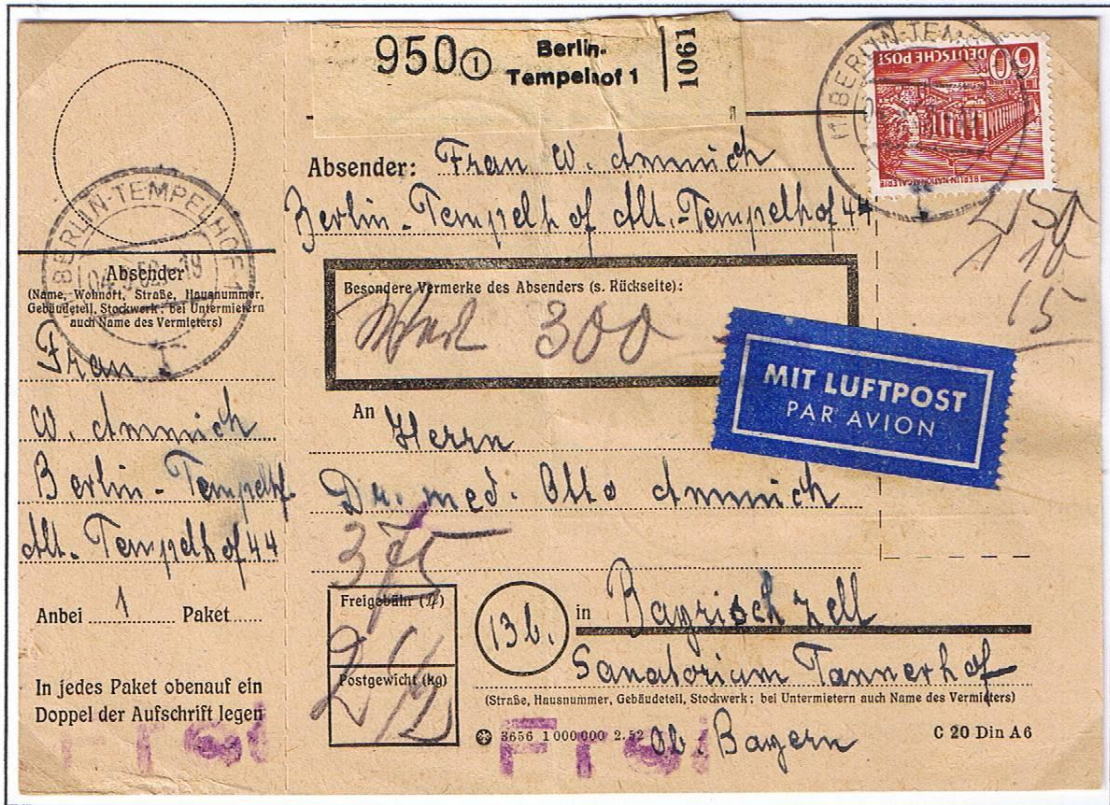 950 1 Berlin-
Tempelhof 1
1061
BERLIN-TEMPELHOF 1
60
DEUTSCHE POST
BERLIN-NATIONALGALERIE
Absender: Frau W. Ammich
Berlin-Tempelhof Alt-Tempelhof 44
110
15
Besondere Vermerke des Absenders (s. Rückseite):
Wert 300
MIT LUFTPOST
PAR AVION
An
Herrn
Dr. med. Otto Ammich
375
Freigebühr
Postgewicht (kg)
2 1/2
13b.
in Bayrischzell
Sanatorium Tannerhof
(Straße, Hausnummer, Gebäudeteil, Stockwerk; bei Untermietern auch Name des Vermieters)
3656 1 000 000 2.52
Ob. Bayern
C 20 Din A6
Frei
BERLIN-TEMPELHOF 1
Absender
(Name, Wohnort, Straße, Hausnummer,
Gebäudeteil, Stockwerk; bei Untermietern
auch Name des Vermieters)
Frau
W. Ammich
Berlin-Tempelhf.
Alt-Tempelhof 44
Anbei 1 Paket
In jedes Paket obenauf ein
Doppel der Aufschrift legen
Frei